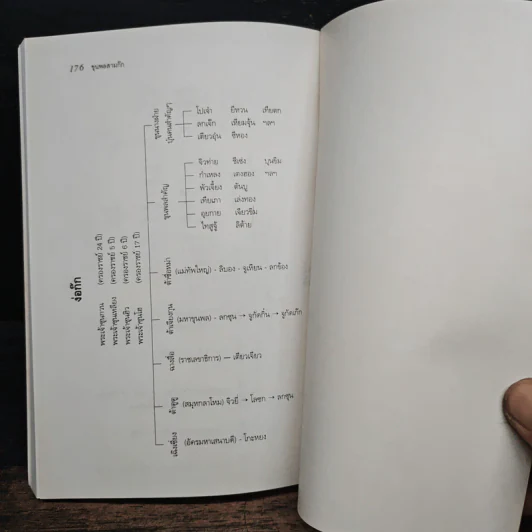 176 ขุนพลสามก๊ก
ง่อก๊ก
พระเจ้าซุนกวน (ครองราชย์ 24 ปี)
พระเจ้าซุนเหลียง (ครองราชย์ 6 ปี)
พระเจ้าซุนฮิว (ครองราชย์ 6 ปี)
พระเจ้าซุนโฮ (ครองราชย์ 17 ปี)
เฉิงเซี่ยง (อัครมหาเสนาบดี) - โกะหยง
ต้าตูตู (สมุหกลาโหม) จิวยี่ → โลซก → ลกซุน
ฉางสื่อ (ราชเลขาธิการ) — เตียวเจียว
ต้าเจียงจวิน (มหาขุนพล) - ลกซุน → จูกัดกิ๋น → จูกัดเก๊ก
ต้าซือหม่า (แม่ทัพใหญ่) - ลิบอง - จูเหียน - ลกข้อง
ขุนพลสำคัญ
จิวท่าย ชีเซ่ง บุนยิม
กำเหลง เตงฮอง ฯลฯ
พัวเจี้ยง ตันบู
เทียเภา เล่งทอง
อุยกาย เจียวขิม
ไทสูจู้ ลิต้าย
ขุนนางฝ่ายบุ๋นคนสำคัญๆ
โปเจ๋า ยีหวน เหียตก
ลกเจ๊ก เทียมจุ้น ฯลฯ
เตียวอุ๋น ซีหอง